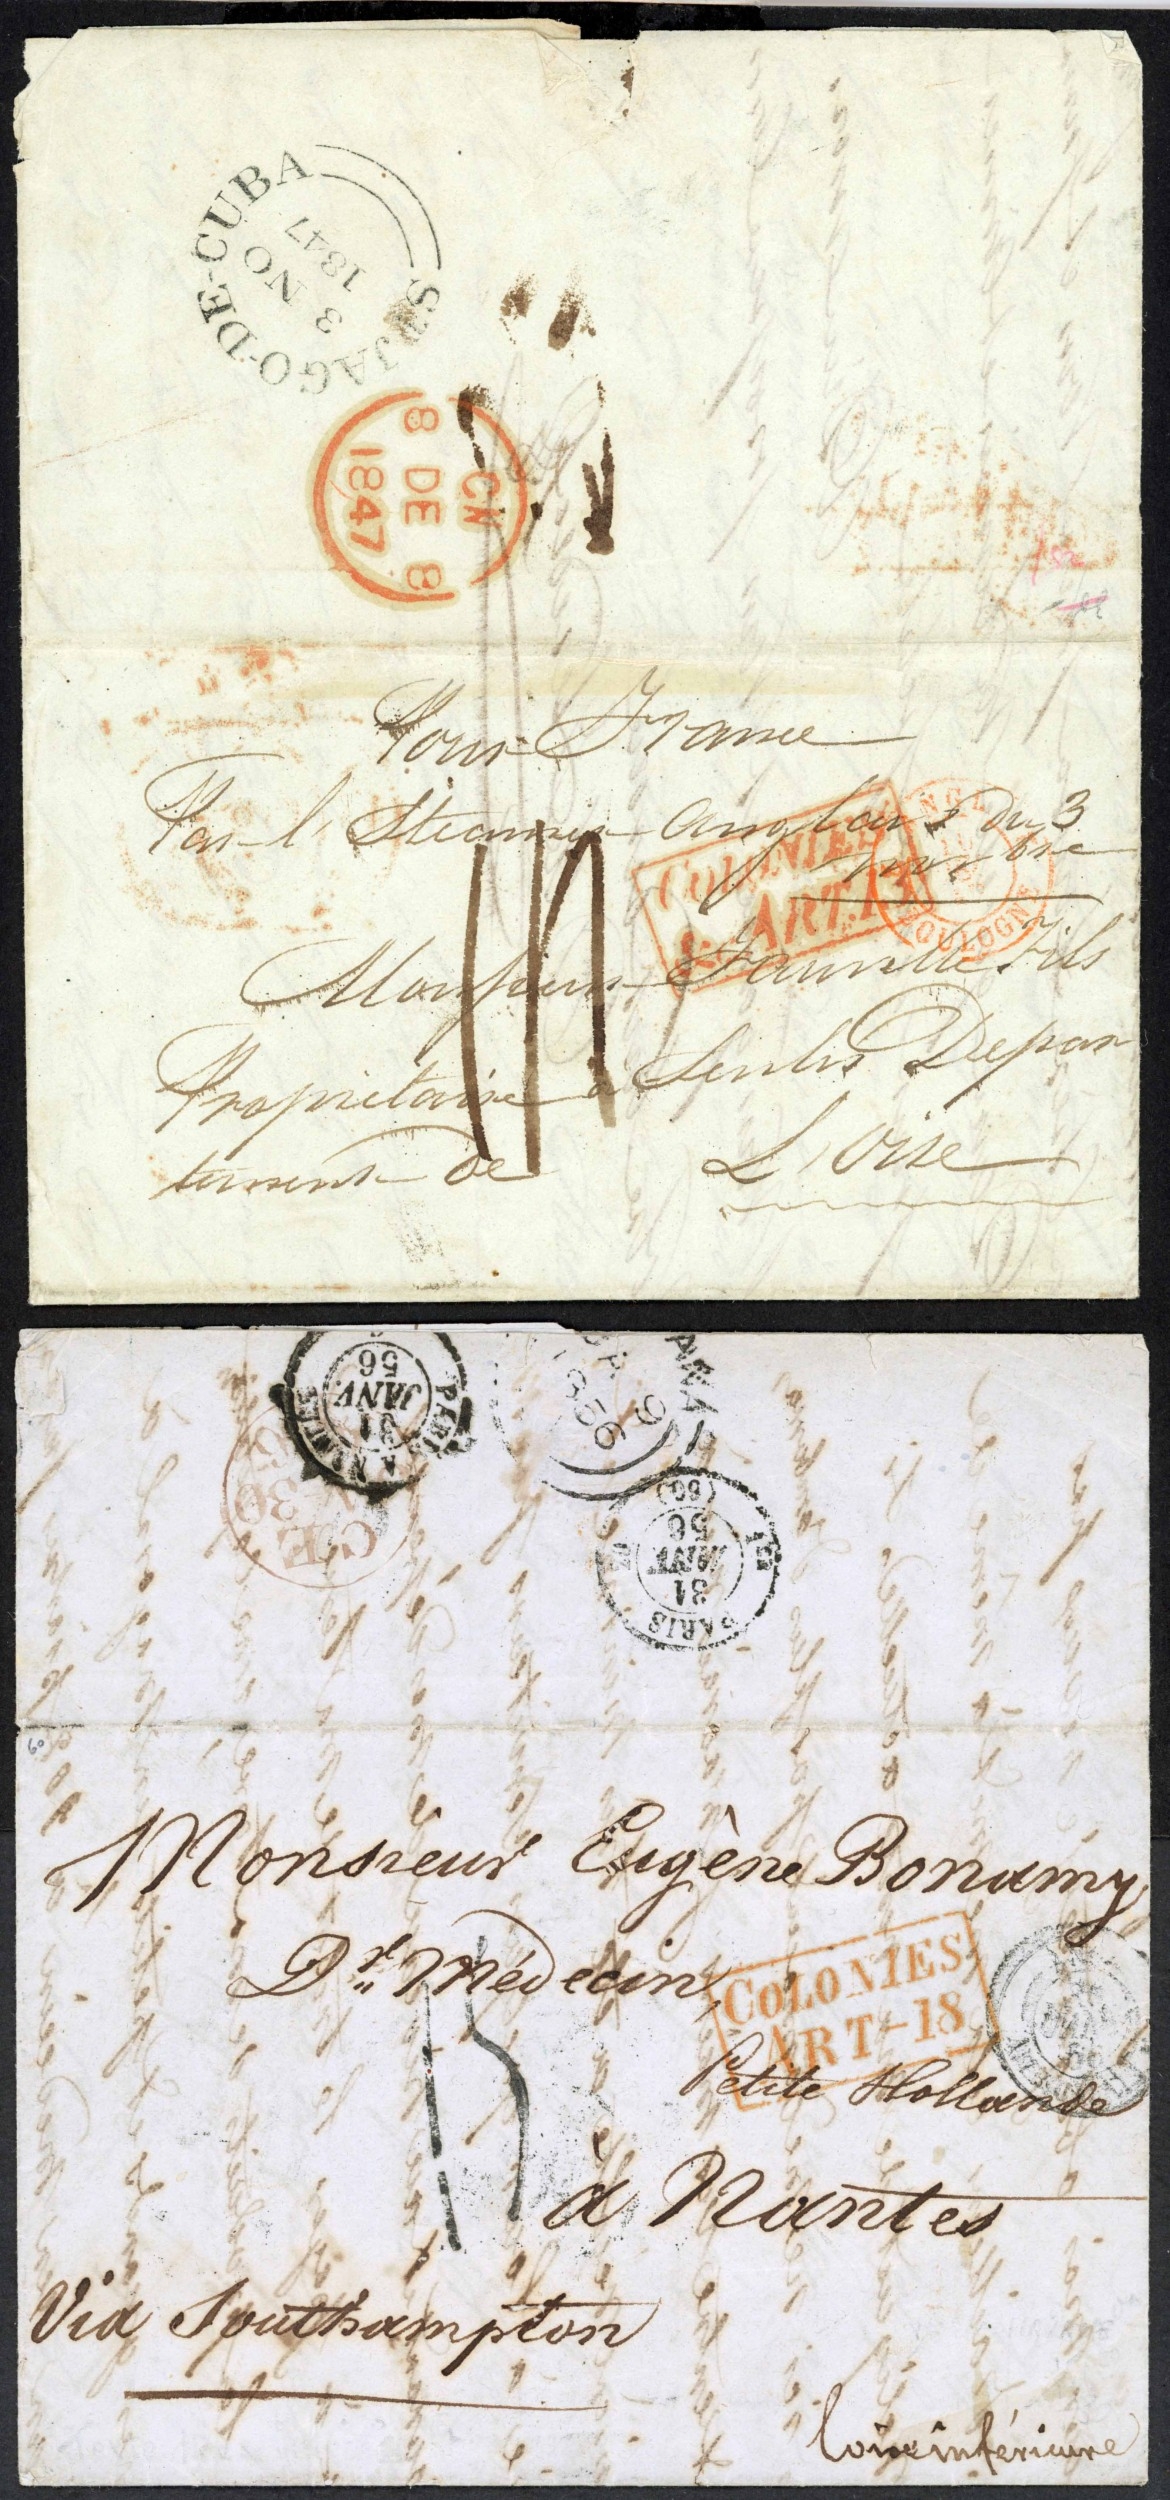 ST JAGO-DE-CUBA
3 NO
1847
CN
8 DE 8
1847
Pour France
Par l' Steamer anglais du 3
novbre
COLONIES
& ART.13
BOULOGNE
Monsieur fils
Propriétaire à Senlis Depar
tement de L'Oise
PARIS A NANTES
31
JANV.
56
9
1856
PARIS
31
JANV.
56
(60)
Monsieur Eugène Bonamy
Dr. Médecin,
COLONIES
ART-18
15
Petite Hollande
à Nantes
Via Southampton
Loire inférieure